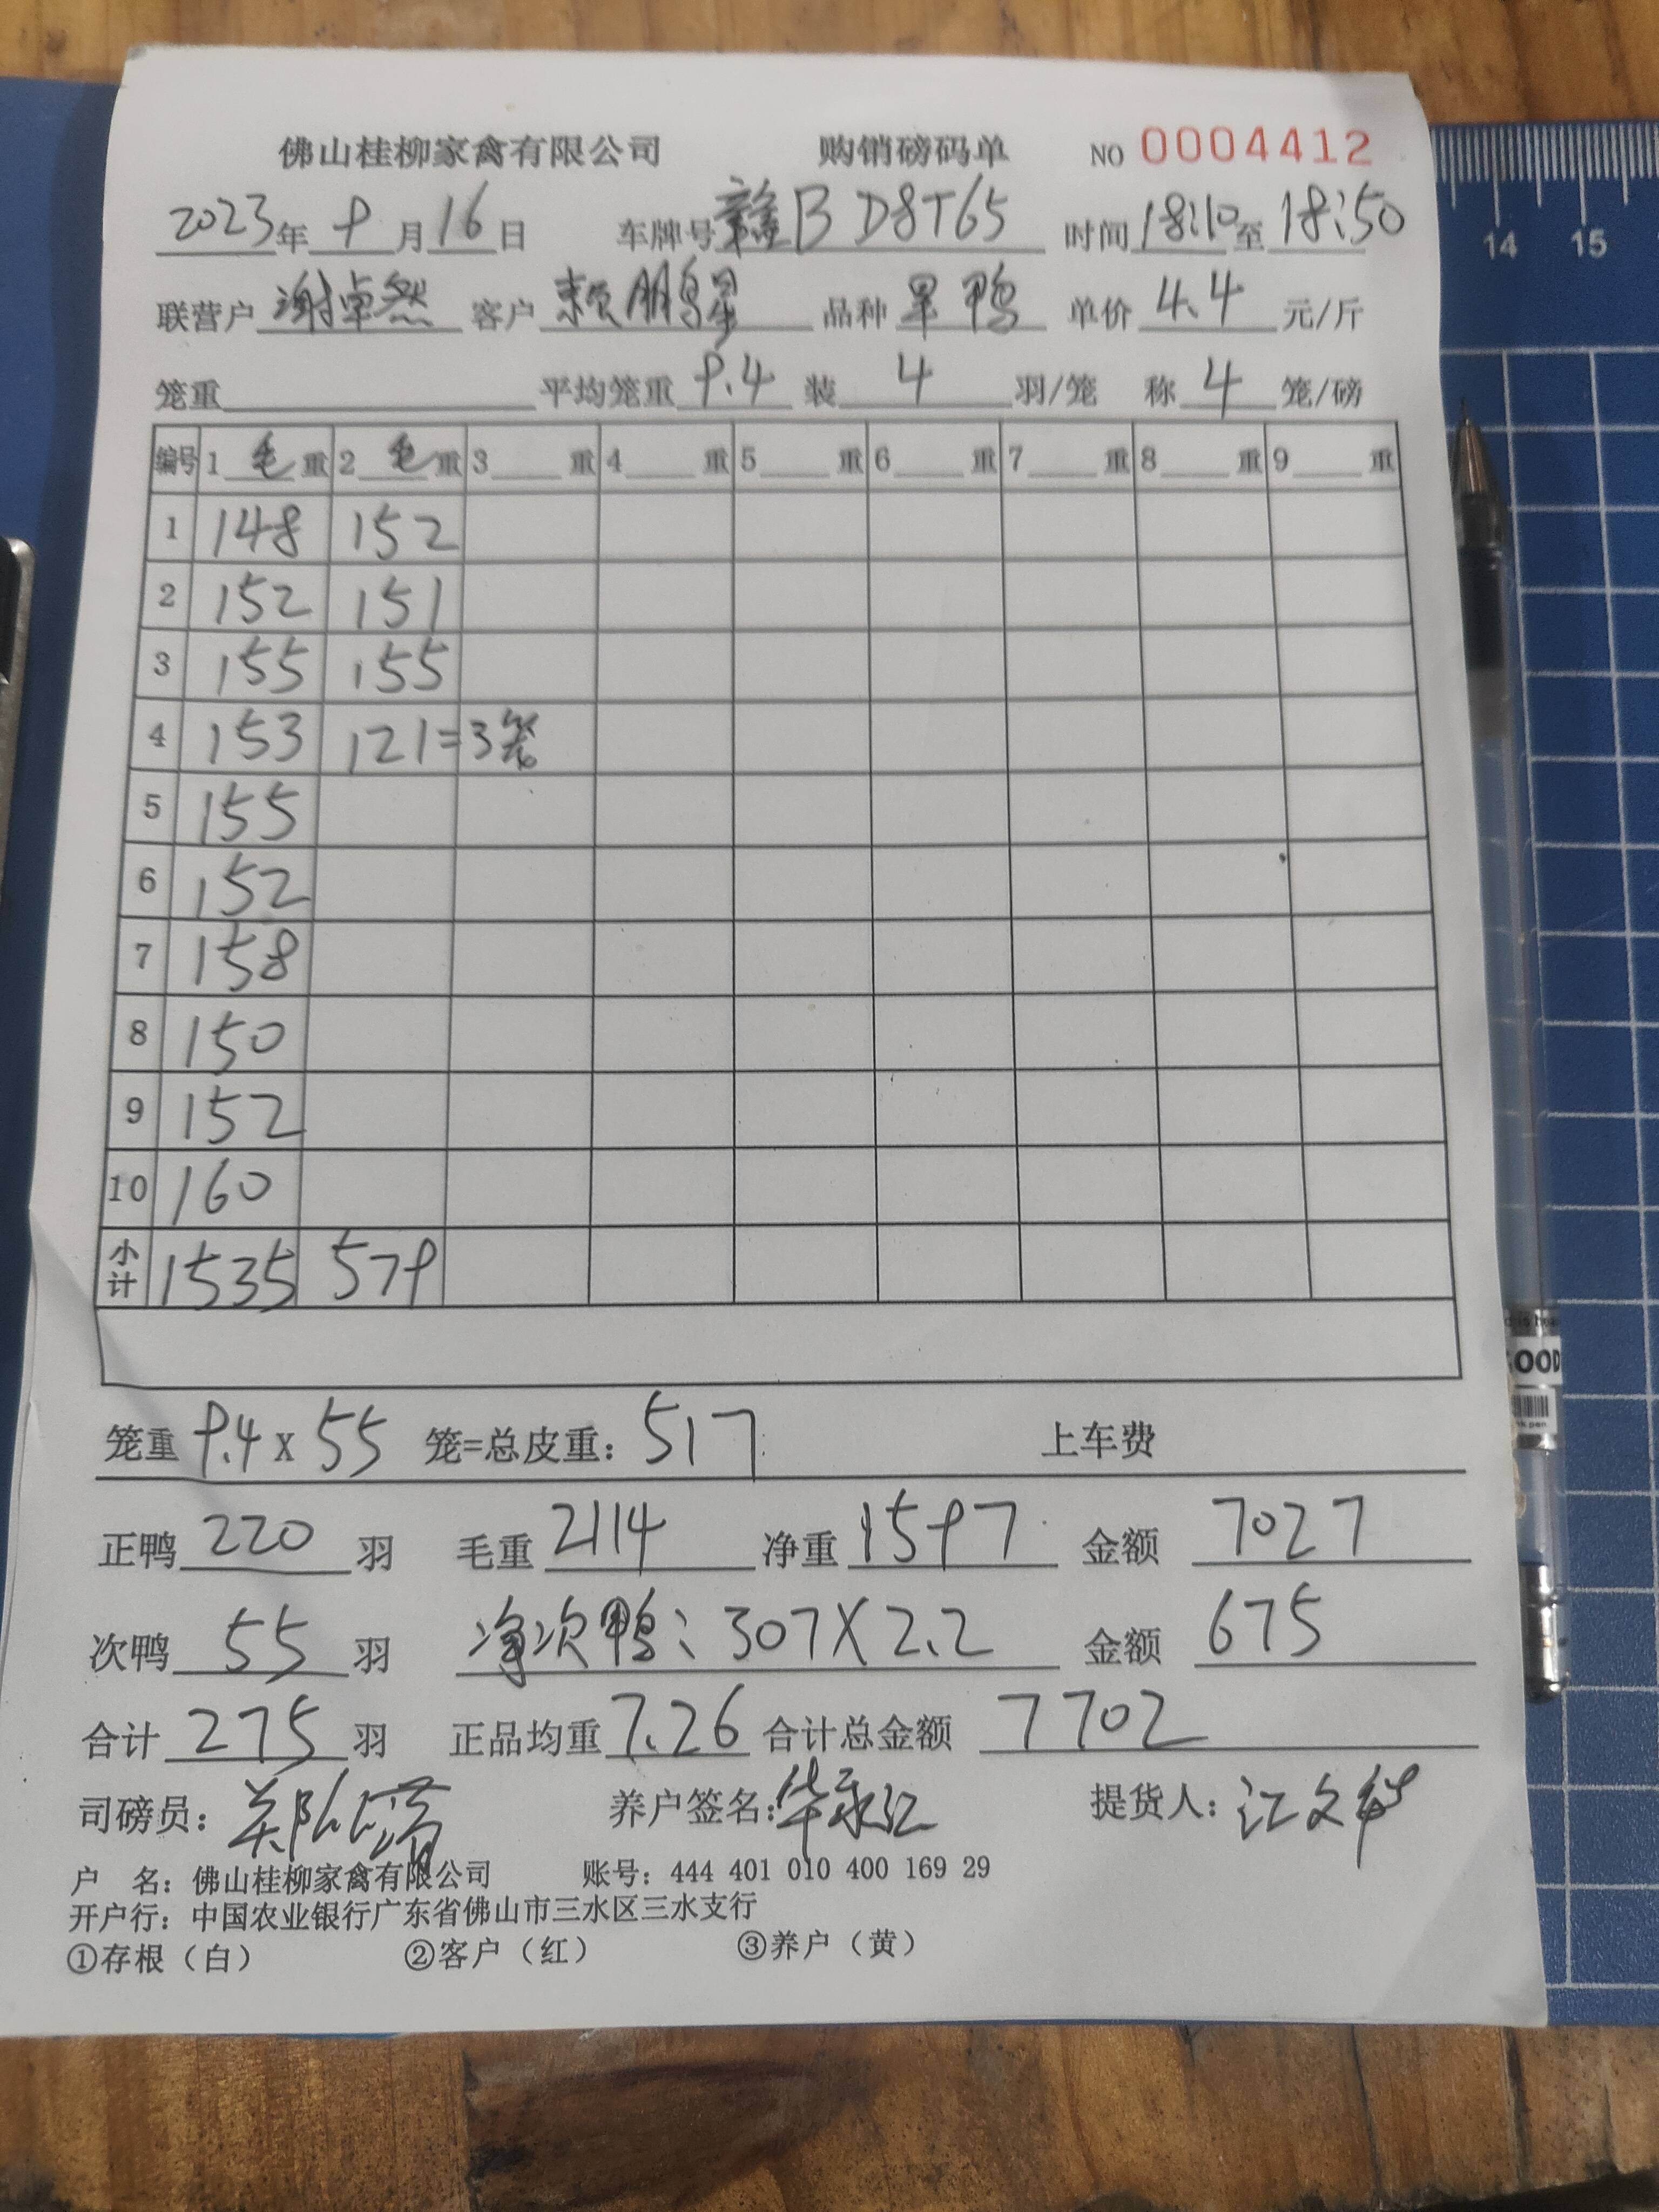 佛山桂柳家禽有限公司 购销磅码单 NO 0004412
2023年 9 月 16 日 车牌号 赣B D8T65 时间 18:10 至 18:50
联营户 谢卓然 客户 赖鹏星 品种 黑鸭 单价 4.4 元/斤
笼重 平均笼重 9.4 装 4 羽/笼 称 4 笼/磅
编号 1 毛 重 2 毛 重 3 重 4 重 5 重 6 重 7 重 8 重 9 重
1 148 152
2 152 151
3 155 155
4 153 121=3笼
5 155
6 152
7 158
8 150
9 152
10 160
小计 1535 579
笼重 9.4 x 55 笼=总皮重: 517 上车费
正鸭 220 羽 毛重 2114 净重 1597 金额 7027
次鸭 55 羽 净次鸭: 307X2.2 金额 675
合计 275 羽 正品均重 7.26 合计总金额 7702
司磅员: 养户签名: 提货人: 江文
户 名: 佛山桂柳家禽有限公司 账号: 444 401 010 400 169 29
开户行: 中国农业银行广东省佛山市三水区三水支行
①存根（白） ②客户（红） ③养户（黄）
14 15
GOOD